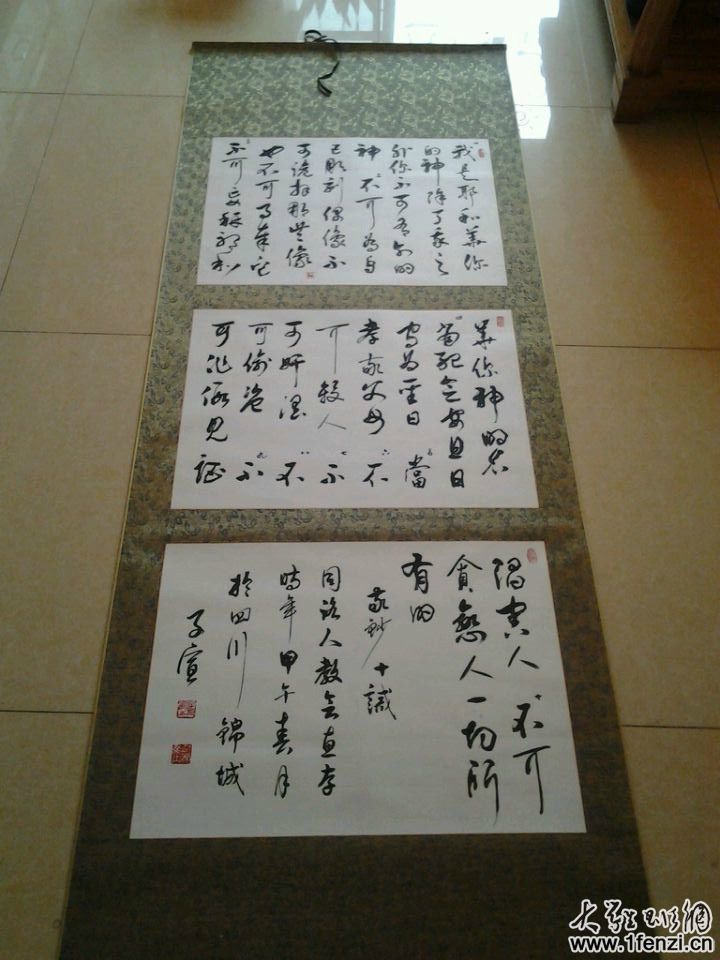 我是耶和華你
的神除了我之
外你不可有别的
神不可為自
己雕刻偶像不
可跪拜那些像
也不可事奉它
不可妄稱耶和
華你神的名
當記念安息日
守為聖日當
孝敬父母不
可殺人不
可奸淫不
可偷盗不
可作假見証
陷害人不可
貪戀人一切所
有的
敬鈔十誡
人教會
時年甲午春月
於四川錦城
子宣
www.1fenzi.cn